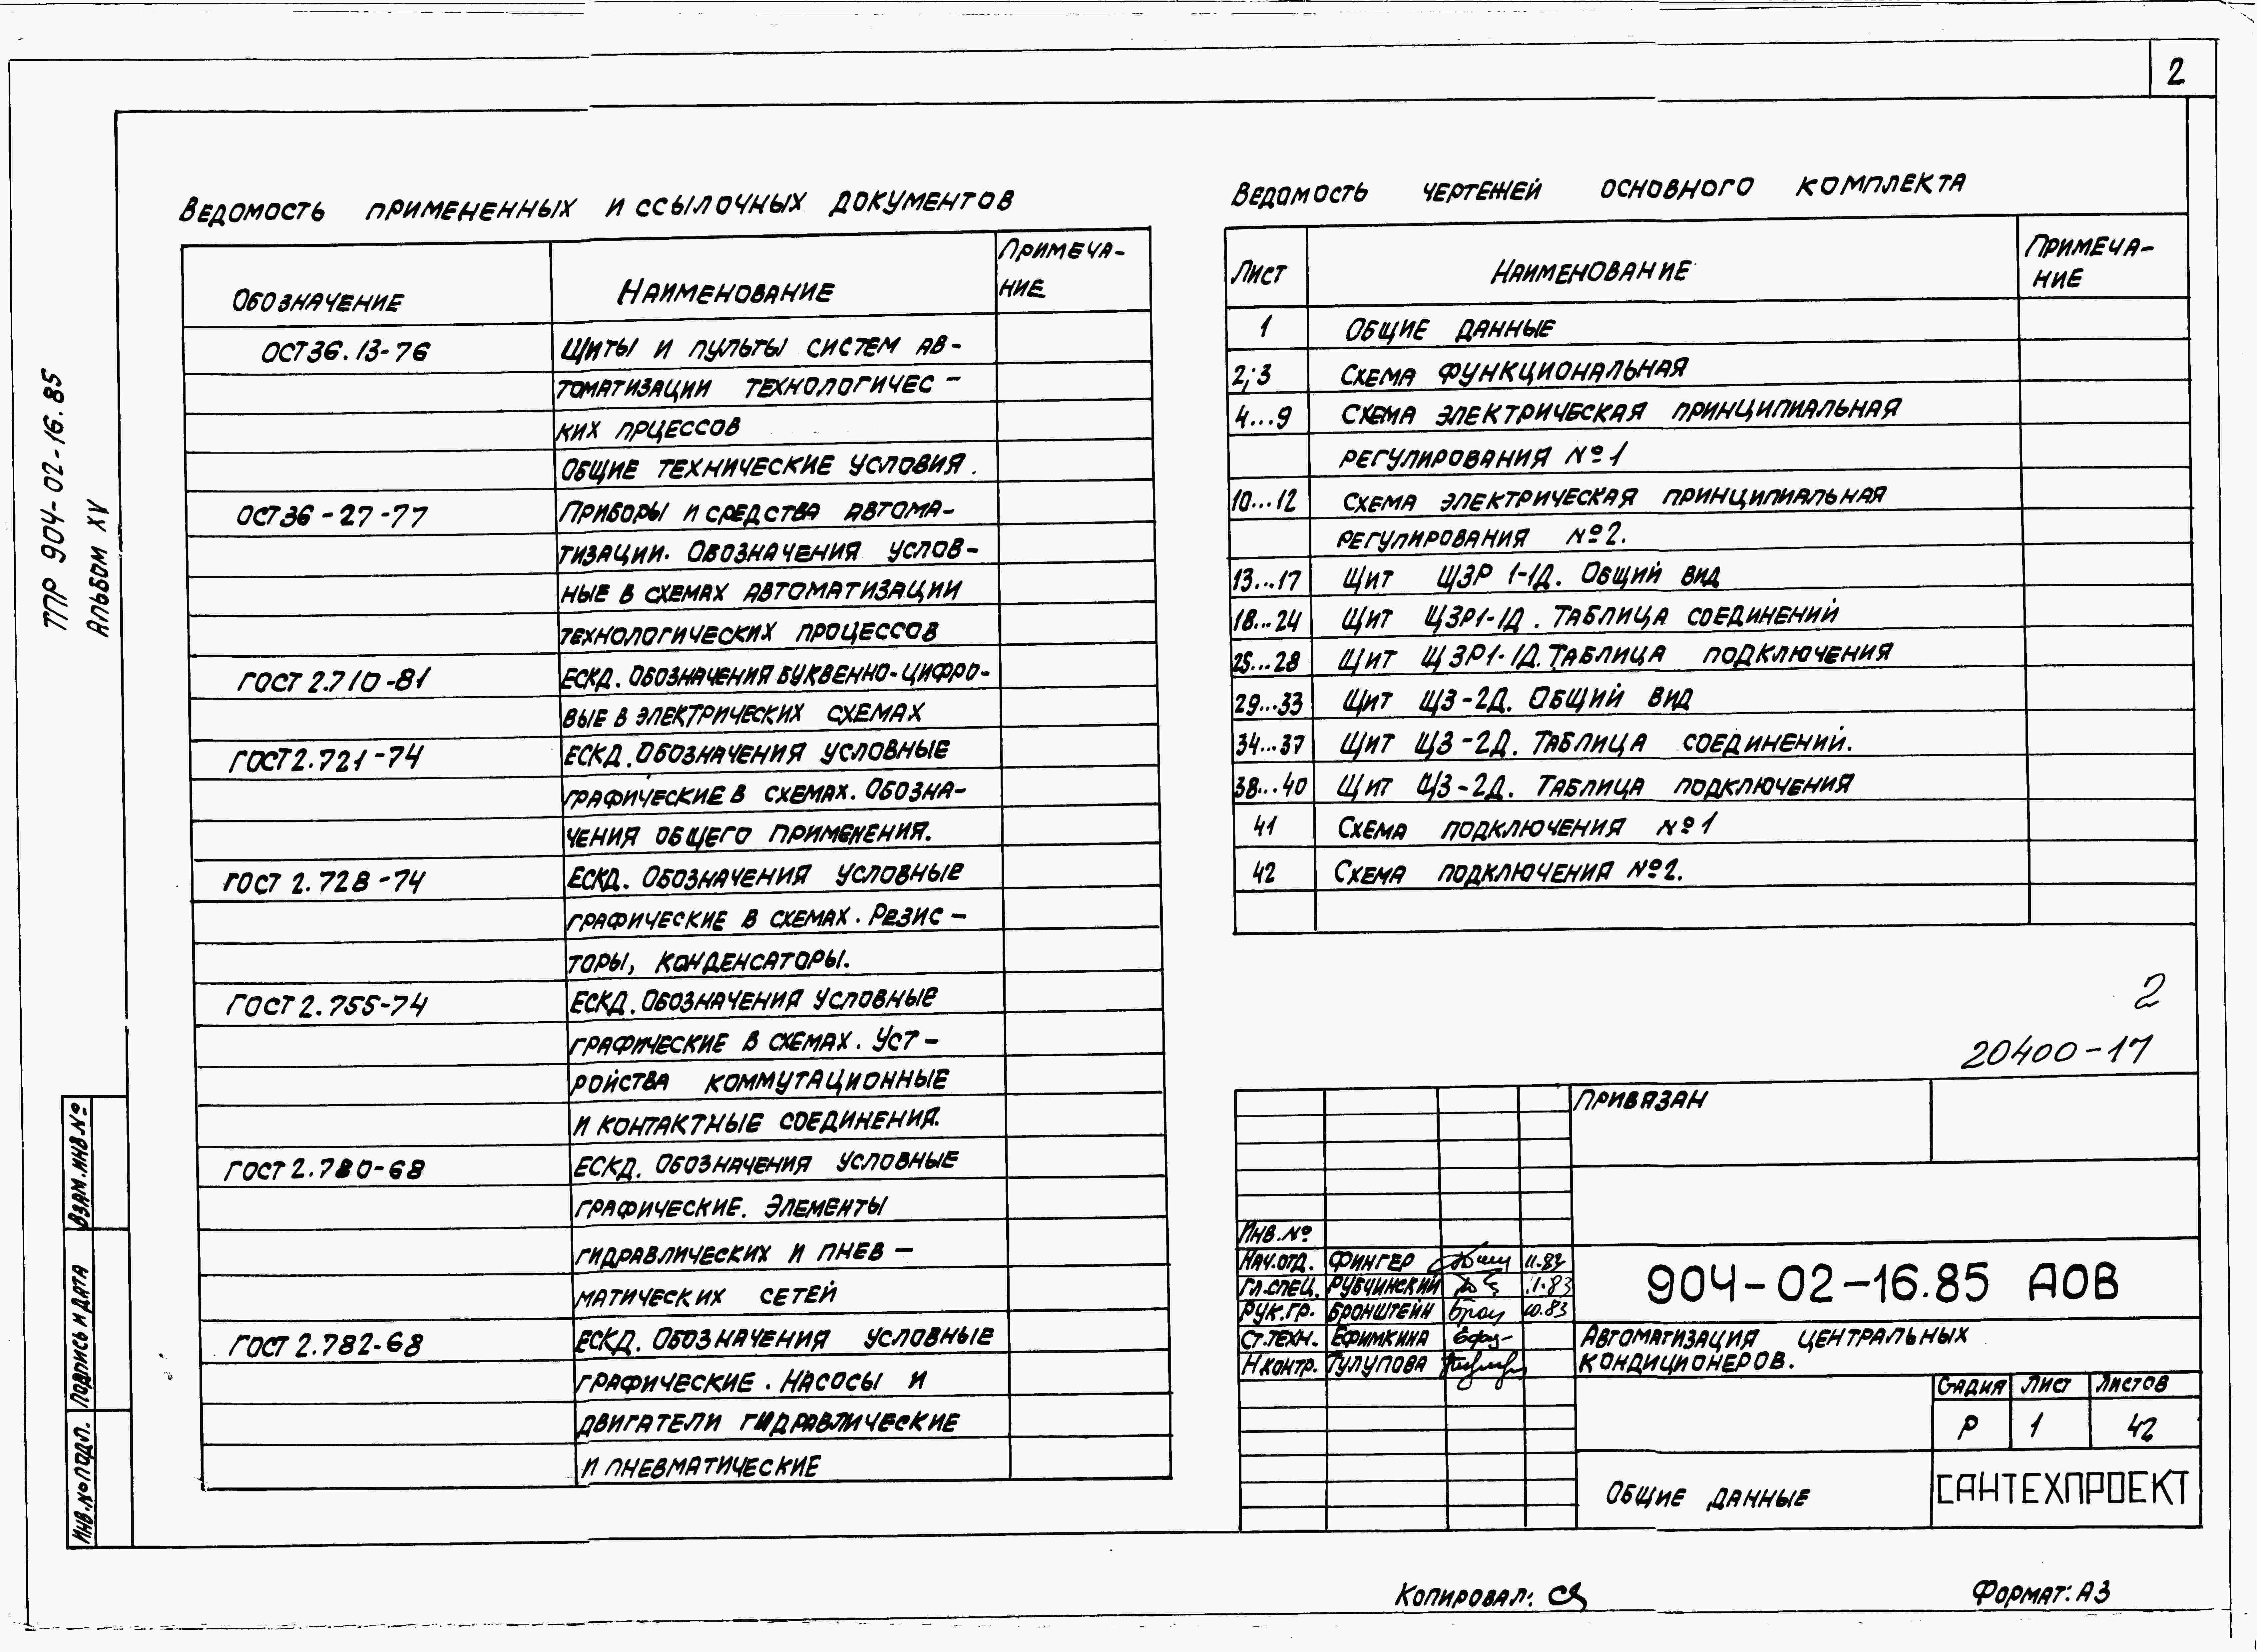 2
ТПР 904-02-16.85
Альбом XV
Ведомость примененных и ссылочных документов
Обозначение Наименование Примеча-
ние
ОСТ36.13-76 Щиты и пульты систем ав-
томатизации технологичес-
ких прцессов
Общие технические условия.
ОСТ36-27-77 Приборы и средства автома-
тизации. Обозначения услов-
ные в схемах автоматизации
технологических процессов
ГОСТ 2.710-81 ЕСКД. Обозначения буквенно-цифро-
вые в электрических схемах
ГОСТ 2.721-74 ЕСКД. Обозначения условные
графические в схемах. Обозна-
чения общего применения.
ГОСТ 2.728-74 ЕСКД. Обозначения условные
графические в схемах. Резис-
торы, конденсаторы.
ГОСТ 2.755-74 ЕСКД. Обозначения условные
графические в схемах. Уст-
ройства коммутационные
и контактные соединения.
ГОСТ 2.780-68 ЕСКД. Обозначения условные
графические. Элементы
гидравлических и пнев-
матических сетей
ГОСТ 2.782-68 ЕСКД. Обозначения условные
графические. Насосы и
двигатели гидравлические
и пневматические
Ведомость чертежей основного комплекта
Лист Наименование Примеча-
ние
1 Общие данные
2;3 Схема функциональная
4...9 Схема электрическая принципиальная
регулирования №1
10...12 Схема электрическая принципиальная
регулирования №2.
13...17 Щит ЩЗР 1-1Д. Общий вид
18...24 Щит ЩЗР1-1Д. Таблица соединений
25...28 Щит ЩЗР1-1Д. Таблица подключения
29...33 Щит ЩЗ-2Д. Общий вид
34...37 Щит ЩЗ-2Д. Таблица соединений.
38...40 Щит ЩЗ-2Д. Таблица подключения
41 Схема подключения №1
42 Схема подключения №2.
2
20400-17
Привязан
Инв.№
Нач.отд. Фингер
Гл.спец. Рубчинский
Рук.гр. Бронштейн 10.83
Ст.техн. Ефимкина
Н.контр. Тулупова
904-02-16.85 АОВ
Автоматизация центральных
кондиционеров.
Стадия Лист Листов
Р 1 42
Общие данные
САНТЕХПРОЕКТ
Взам.инв.№
Подпись и дата
Инв.№ подл.
Копировал:
Формат: А3